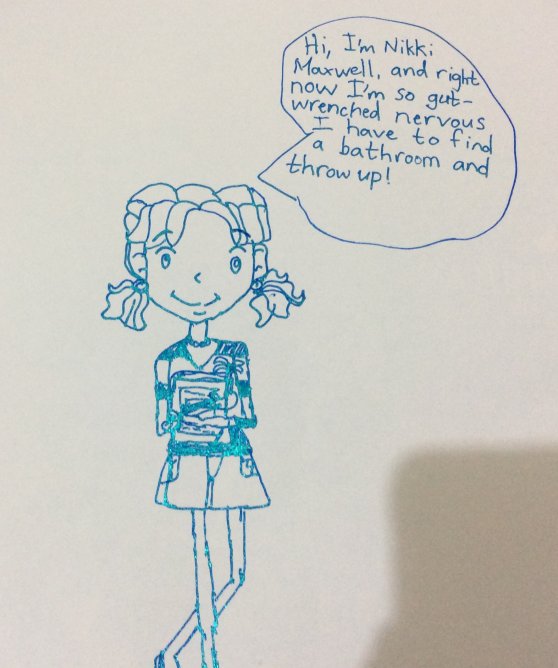 Hi, I'm Nikki
Maxwell, and right
now I'm so gut-
wrenched nervous
I have to find
a bathroom and
throw up!